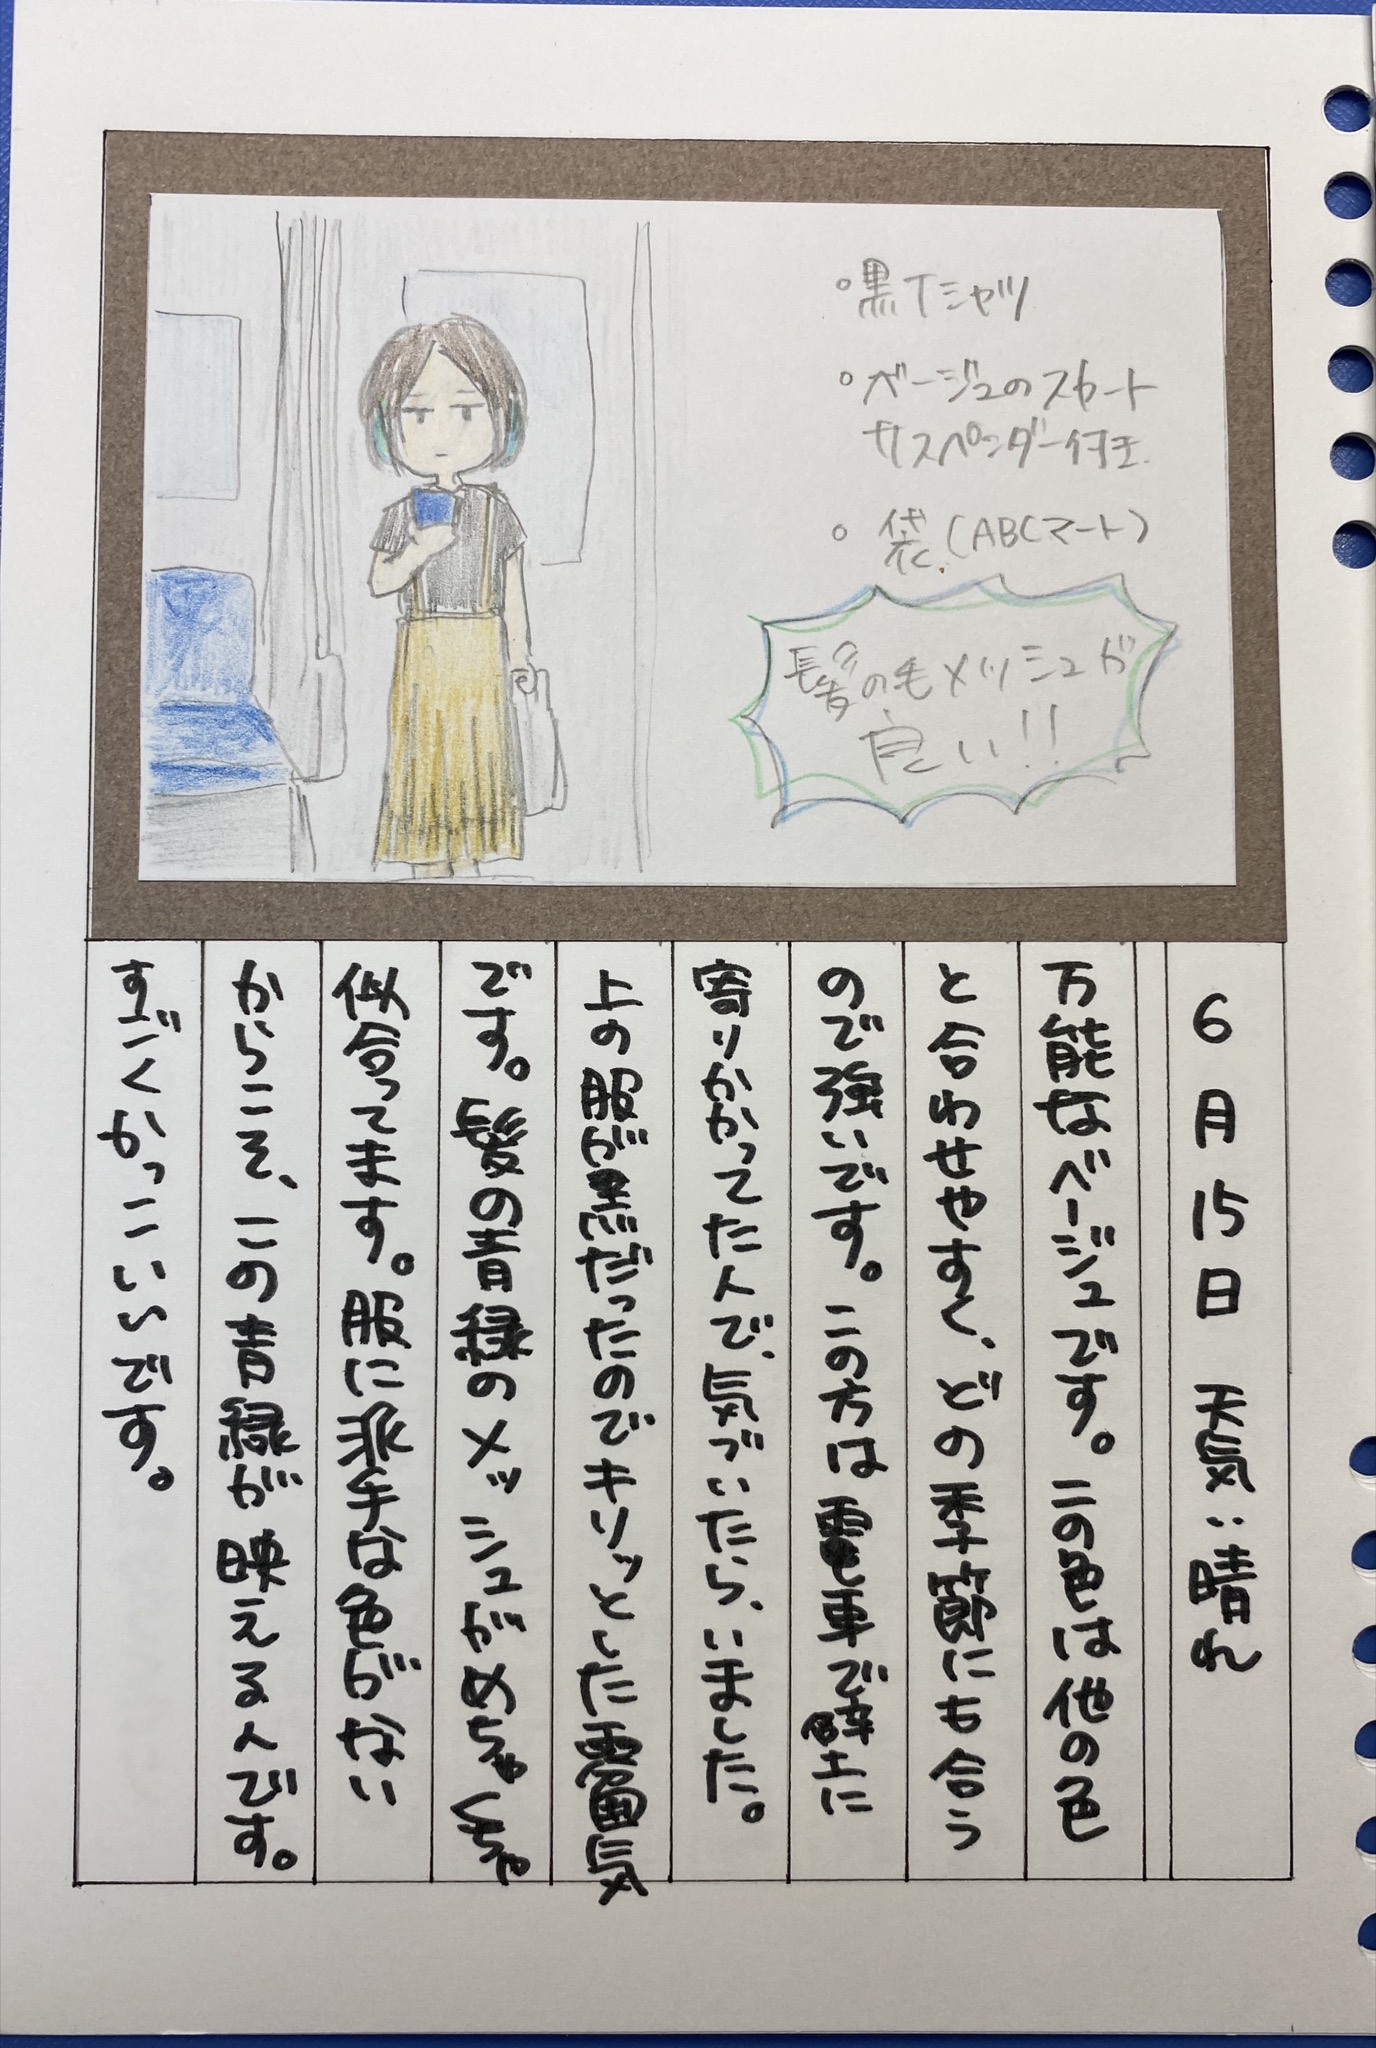 ・黒Tシャツ
・ベージュのスカート
サスペンダー付き
・袋(ABCマート)
髪の毛メッシュが
良い!!
6月15日 天気:晴れ
万能なベージュです。この色は他の色
と合わせやすく、どの季節にも合う
ので強いです。この方は電車で壁に
寄りかかってた人で、気づいたら、いました。
上の服が黒だったのでキリッとした雰囲気
です。髪の青緑のメッシュがめちゃくちゃ
似合ってます。服に派手な色がない
からこそ、この青緑が映える人です。
すごくかっこいいです。